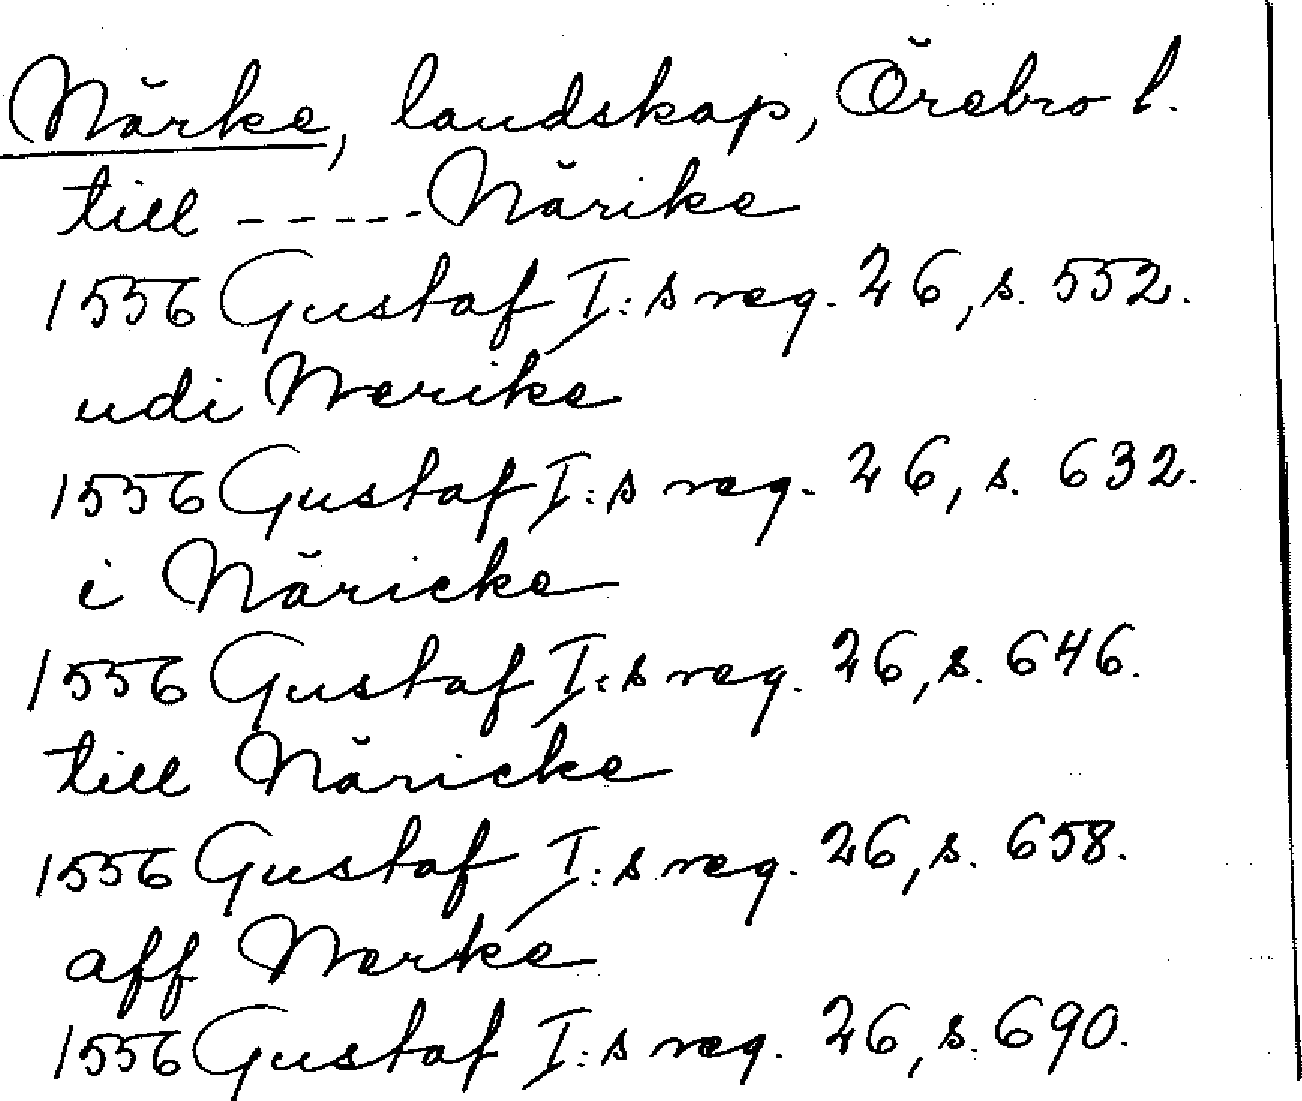 Närke, landskap, Örebro l.
till ----- Närike
1556 Gustaf I:s reg. 26, s. 552.
udi Nerike
1556 Gustaf I:s reg. 26, s. 632.
i Näricke
1556 Gustaf I:s reg. 26, s. 646.
till Näricke
1556 Gustaf I:s reg. 26, s. 658.
aff Nerke
1556 Gustaf I:s reg. 26, s. 690.